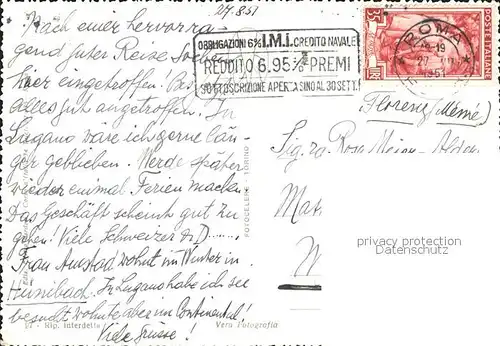 27.8.51
Nach einer hervorra-
gend guter Reise
hier eingetroffen!
alles gut angetroffen. In
Lugano wäre ich gerne län-
ger geblieben. Werde später
wieder einmal Ferien machen.
Das Geschäft scheint gut zu
gehen! Viele Schweizer & D
Frau Amstad wohnt im Winter in
Hünibach. In Lugano habe ich sie
besucht wohnte aber im Continental!
Viele Grüsse!
OBBLIGAZIONI 6% I.M.I. CREDITO NAVALE
REDDITO 6.95% PREMI
SOTTOSCRIZIONE APERTA SINO AL 30 SETT.
ROMA
19
27
1951
POSTE ITALIANE
LIRE
35
Sig.ra Rosa
Mat
privacy protection
watermark
FOTOCELERE - TORINO
Rip. interdetta
Vera Fotografia